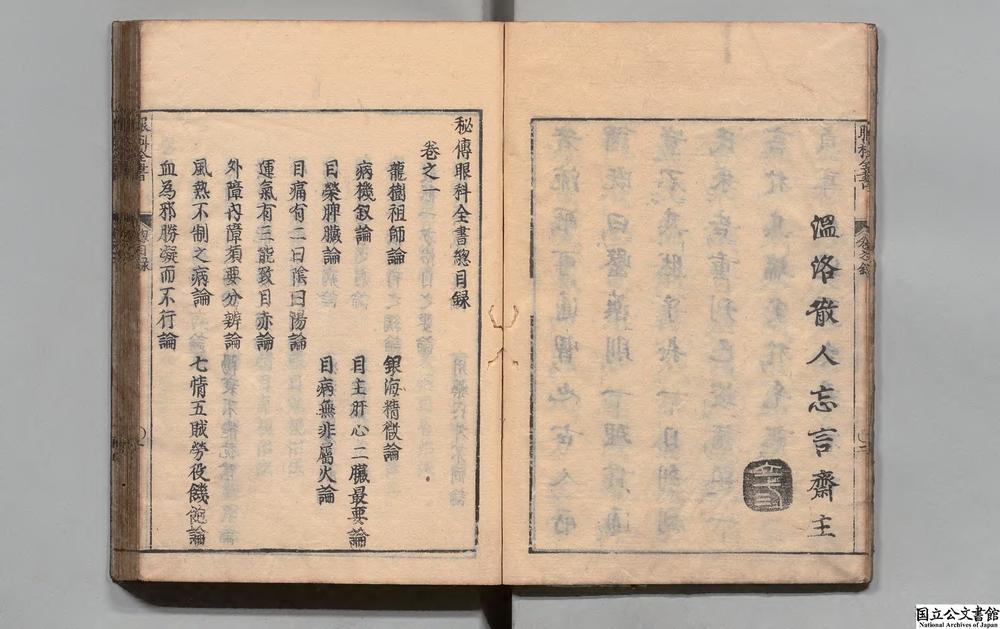 溫洛散人忘言齋主
秘傳眼科全書總目録
卷之一
龍樹祖師論
銀海精微論
病機叙論
目主肝心二臟最要論
目榮脾臟論
目病無非屬火論
目痛有二曰陰曰陽論
運氣有三能致目赤論
外障內障須要分辨論
風熱不制之病論
七情五賊勞役饑飽論
血為邪勝凝而不行論
眼科全書
總目録
国立公文書館
National Archives of Japan